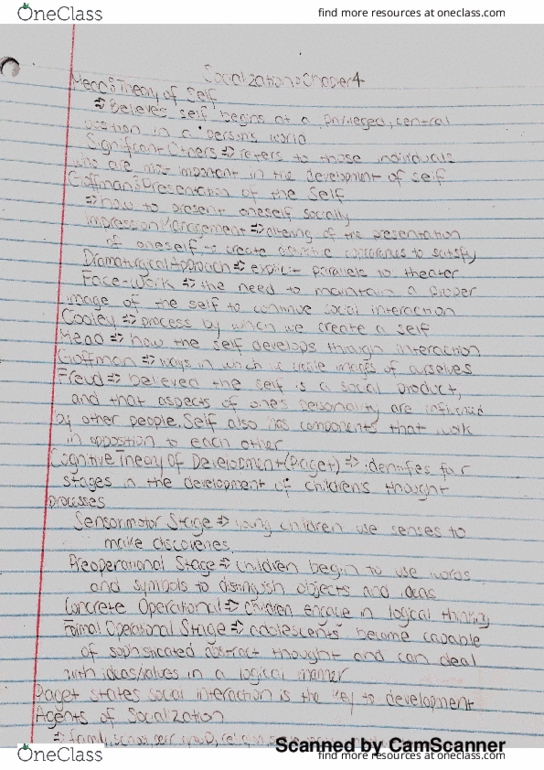 OneClass
find more resources at oneclass.com
Socialization: Chapter 4
Mead's Theory of Self
⇒ believes self begins at a privileged, central
position in a persons world
Significant Others ⇒ refers to those individuals
who are most important in the development of self
Goffman's Presentation of the Self
⇒ how to present oneself socially
Impression Management ⇒ altering of the presentation
of oneself to create distinctive to satisfy
Dramaturgical Approach ⇒ explicit parallels to theater
Face-Work ⇒ the need to maintain a proper
image of the self to continue social interaction
Cooley ⇒ process by which we create a self
Mead ⇒ how the self develops through interaction
Goffman ⇒ ways in which we create images of ourselves
Freud ⇒ believed the self is a social product,
and that aspects of one's personality are influenced
by other people. Self also has components that work
in opposition to each other
Cognitive Theory Of Development (Piaget) ⇒ identifies four
stages in the development of children's thought
processes
Sensorimotor Stage ⇒ young children use senses to
make discoveries
Preoperational Stage ⇒ children begin to use words
and symbols to distinguish objects and ideas
Concrete Operational ⇒ children engage in logical thinking
Formal Operational Stage ⇒ adolescents become capable
of sophisticated abstract thought and can deal
with ideas/values in a logical manner
Piaget states social interaction is the key to development
Agents of Socialization
⇒ family, school, peer group,
Scanned by CamScanner
OneClass
find more resources at oneclass.com